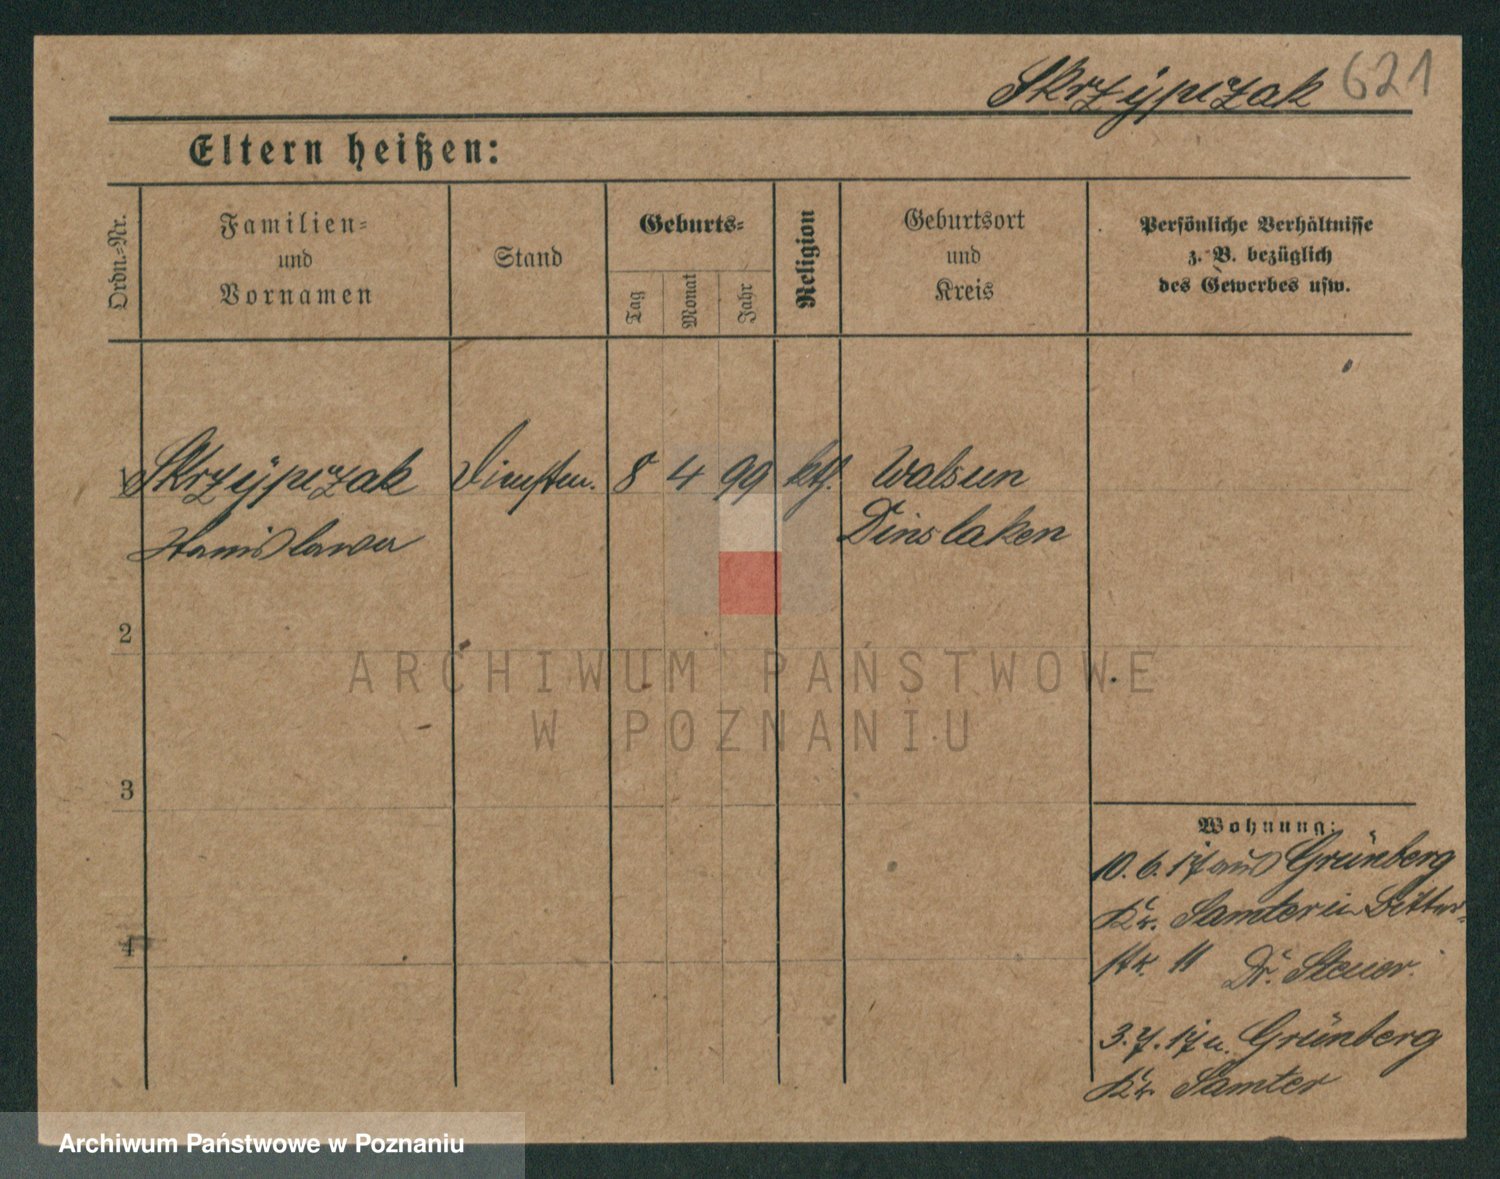 Skrzypczak 621
Eltern heißen:
Ordn.-Nr.
Familien-
und
Vornamen
Stand
Geburts-
Tag
Monat
Jahr
Religion
Geburtsort
und
Kreis
Persönliche Verhältnisse
z. B. bezüglich
des Gewerbes usw.
1 Skrzypczak Dienstm. 8 4 99 kth. Walsum
Stanislawa Dinslaken
2
ARCHIWUM PAŃSTWOWE
W POZNANIU
3
Wohnung:
10. 6. 17 aus Grünberg
Kr. Samter in Ritter-
4
str. 11 Dr. Steuer.
3. 7. 17 n. Grünberg
Kr. Samter
Archiwum Państwowe w Poznaniu